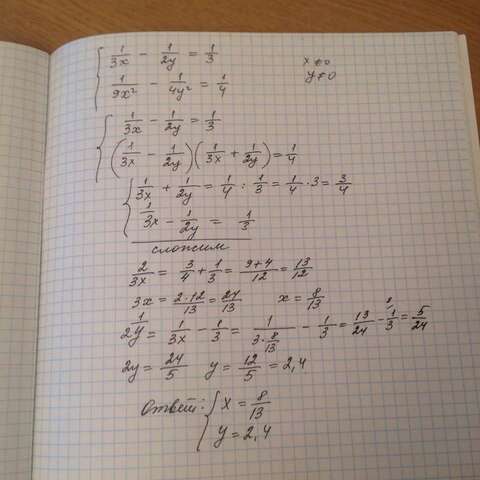 { 1/3x - 1/2y = 1/3
x ≠ 0
{ 1/9x² - 1/4y² = 1/4
y ≠ 0
{ 1/3x - 1/2y = 1/3
{ (1/3x - 1/2y)(1/3x + 1/2y) = 1/4
{ 1/3x + 1/2y = 1/4 : 1/3 = 1/4 · 3 = 3/4
{ 1/3x - 1/2y = 1/3
сложим
2/3x = 3/4 + 1/3 = 9+4/12 = 13/12
3x = 2·12/13 = 24/13 x = 8/13
1/2y = 1/3x - 1/3 = 1/3·8/13 - 1/3 = 13/24 - 1/3 ⁸ = 5/24
2y = 24/5 y = 12/5 = 2,4
Ответ: { x = 8/13
{ y = 2,4